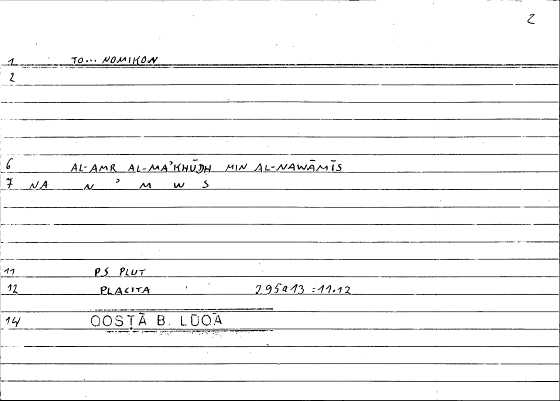 2
1 TO... NOMIKON
2
6 AL-AMR AL-MA'KHŪDH MIN AL-NAWĀMĪS
7 NA N ' M W S
11 PS PLUT
12 PLACITA 295a13 :11.12
14 QOSṬĀ B. LŪQĀ